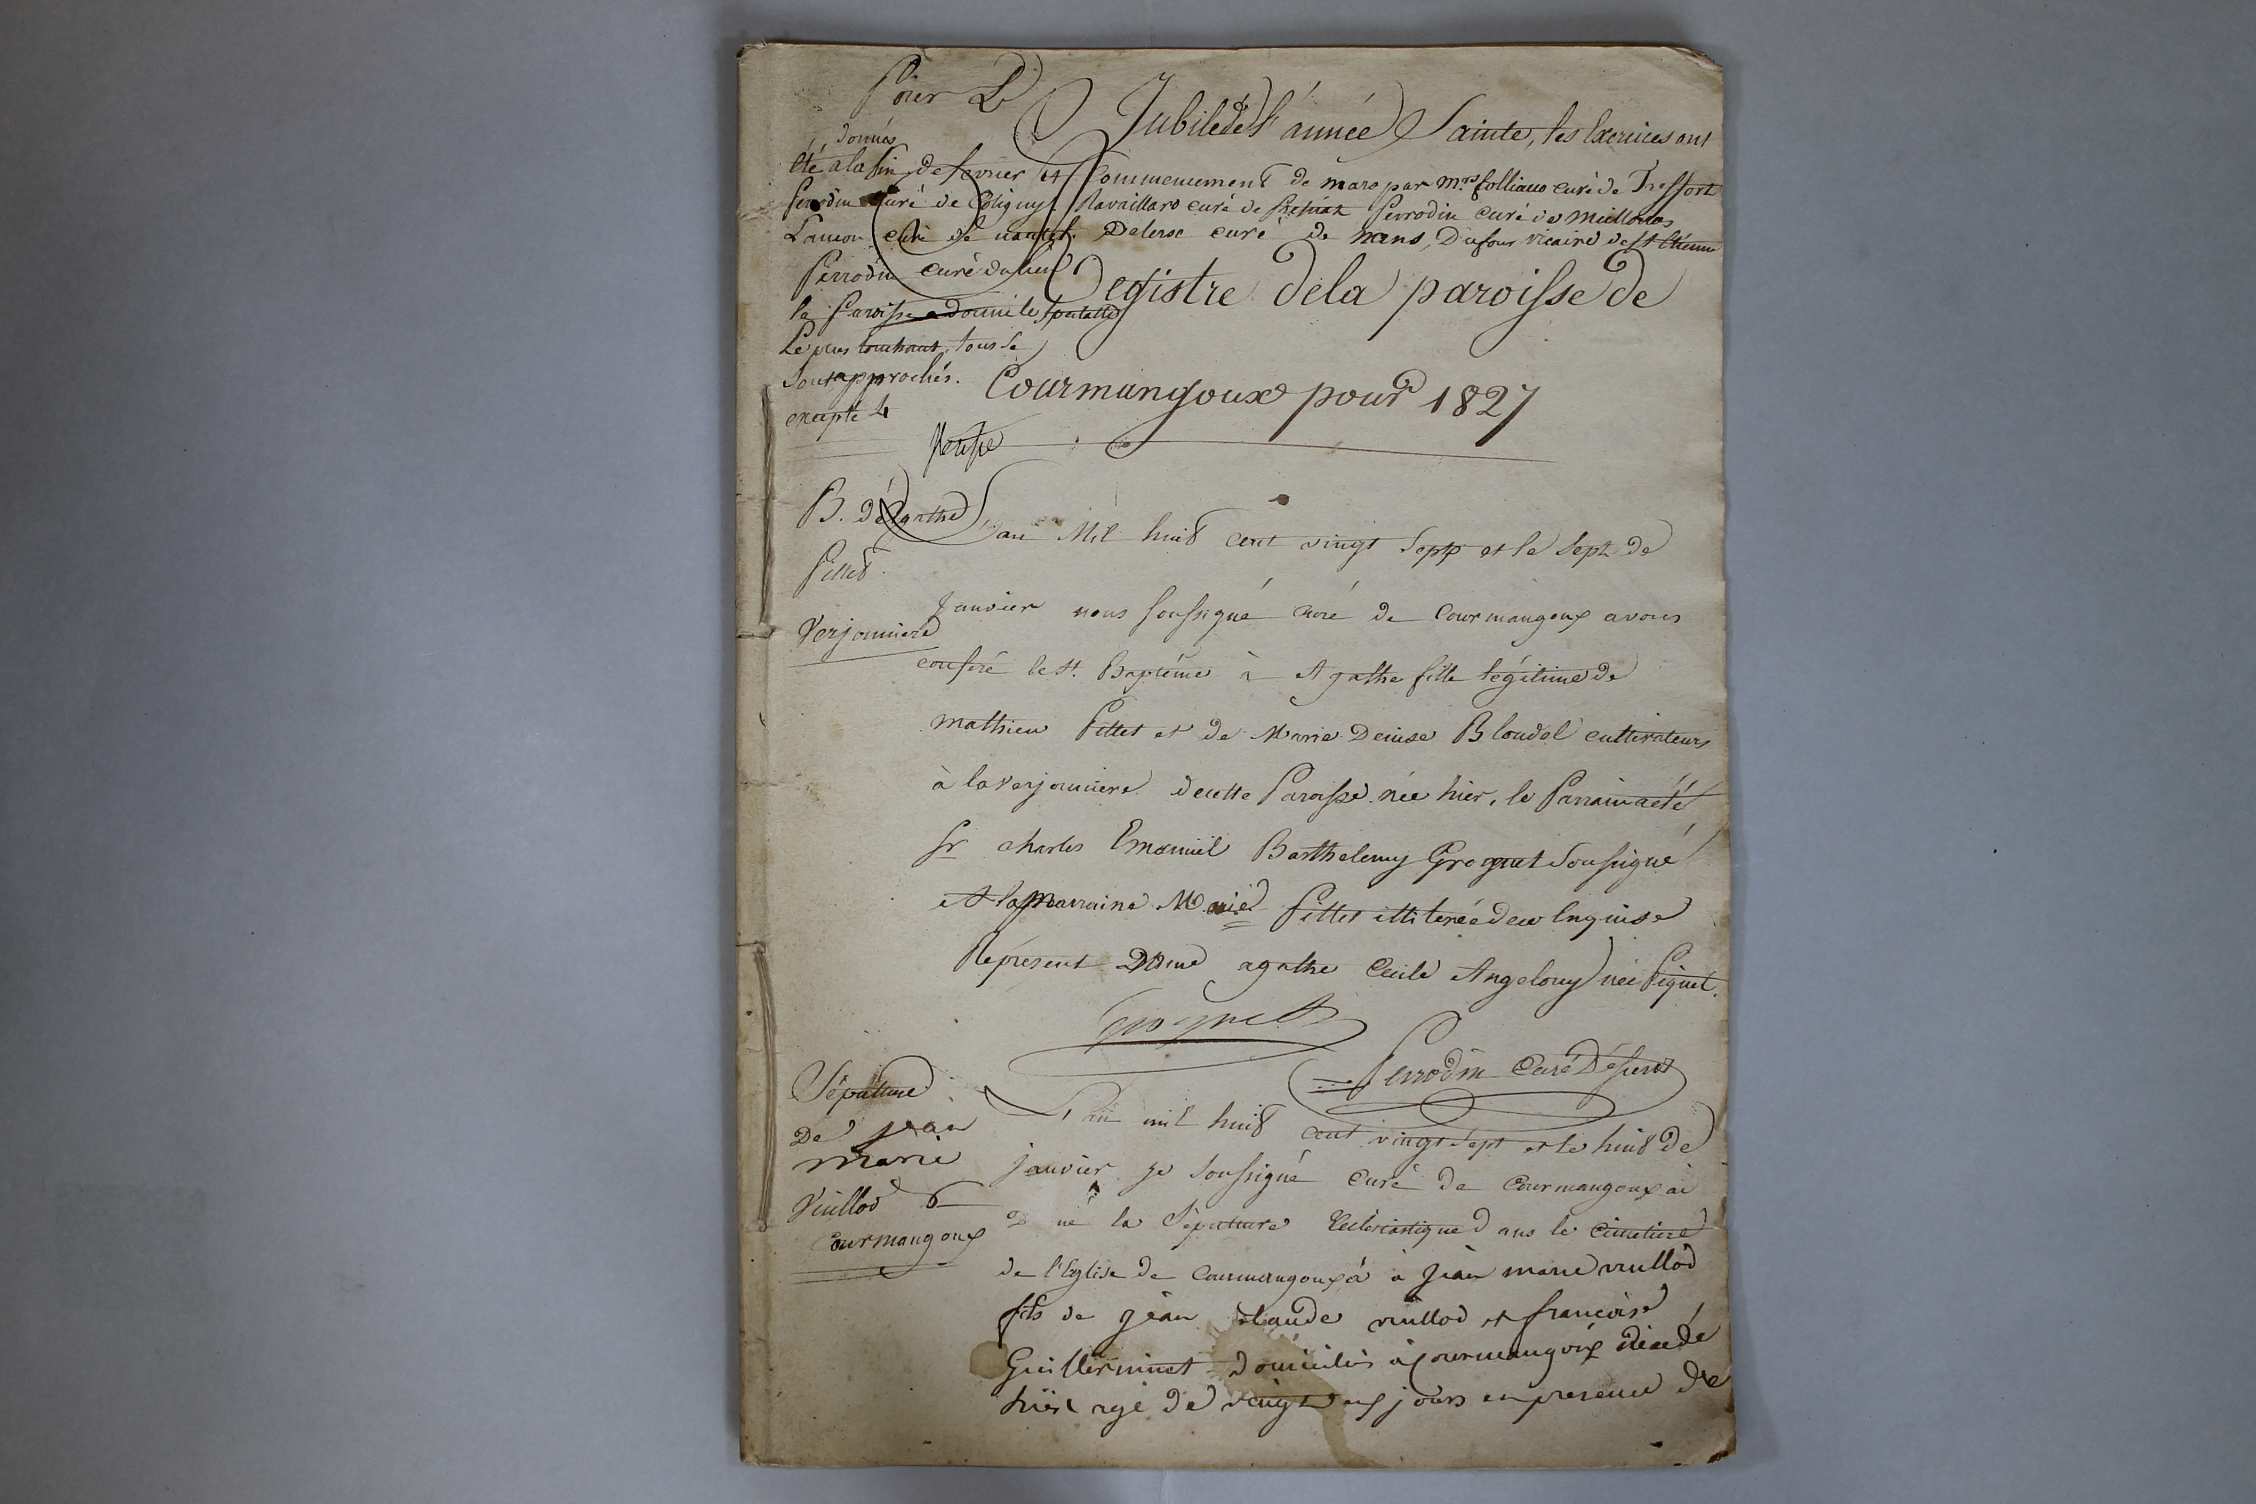 Pour Le Jubilé de l'année Sainte, les Exercices ont
été donnés à la fin de fevrier et commencement de mars par mrs folliano curé de Treffort
Perrodin curé de Coligny, Ravaillard curé de Perrodin curé de Meillonas
curé de Delerse curé de nans, Dufour vicaire de St Etienne
Perrodin curé du lieu
la Paroisse a donné le spectacle
Le plus touchant, tous se
sont approchés.
excepté 4
Registre de la paroisse de
Courmangoux pour 1827
B. d'Agathe
Pillet.
Verjonniere
L'an Mil huit cent vingt Sept et le Sept de
Janvier nous soussigné curé de Courmangoux avons
conferé le St. Baptême à Agathe fille légitime de
mathieu Pillet et de Marie Denise Blondel cultivateurs
à la verjonniere de cette Paroisse née hier, le Parrain a été
Sr charles Emanuel Barthelemy Grognet Soussigné
et la Marraine Marie Pillet illiterée de ce Enquise
Représent Dame agathe Cecile Angelouy née Piquet.
Grognet
Perrodin Curé Déservt
Sépulture
De jean
marie
Vuillod de
Courmangoux
L'an mil huit cent vingt Sept et le huit de
janvier je soussigné Curé de Courmangoux ai
donné la Sépulture Ecclésiastique dans le cimetiere
de l'Eglise de Courmangoux à à jean marie vuillod
fils de jean claude vuillod et francoise
Guillerminet domiciliés à Courmangoux décédé
hier agé de vingt jours en presence de